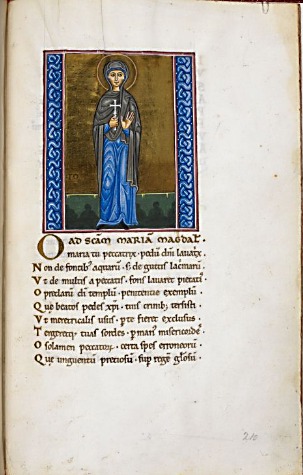 AD SCAM MARIA MAGDAL.
O maria tu peccatrix. pedū dnī lavatrix
Non de fontib; aquarū. s; de guttis lacrimarū
Vt de multis a peccatis. fons lavaret pietatis
O preclarū di templū. penitentie exemplū
Que beatos pedes xpi. tuis crinib; tersisti.
Vt meretricalis usus. p te fieret exclusus.
Tergeretq; tuas sordes. p
O solamen peccatorū. certa spes erroneorū
Que unguentū preciosū. sup regē gl'osū.
210